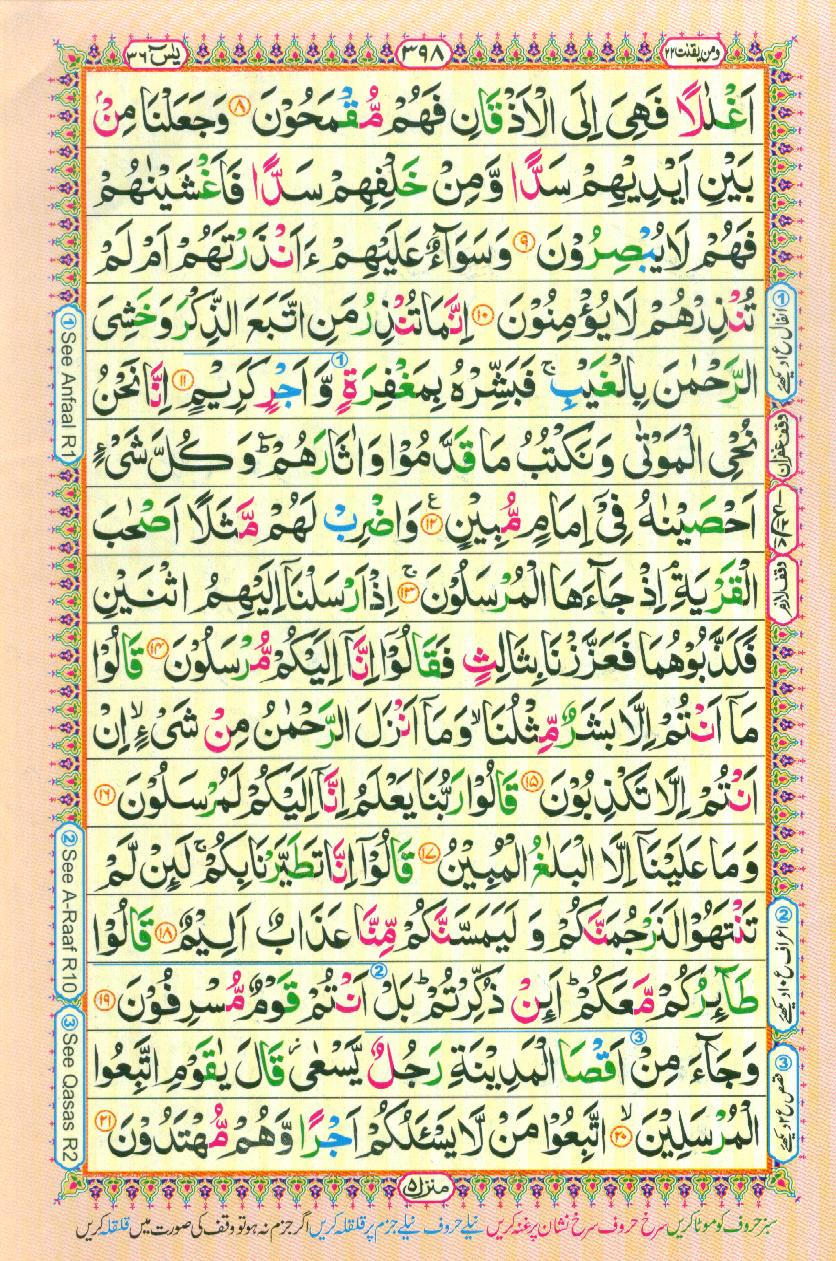 ومن یقنت ۲۲
۳۹۸
یٰسٓ ۳۶
اَغْلٰلًا فَهِىَ اِلَى الْاَذْقَانِ فَهُمْ مُّقْمَحُوْنَ ۸ وَجَعَلْنَا مِنْۢ
بَيْنِ اَيْدِيْهِمْ سَدًّا وَّمِنْ خَلْفِهِمْ سَدًّا فَاَغْشَيْنٰهُمْ
فَهُمْ لَا يُبْصِرُوْنَ ۹ وَسَوَآءٌ عَلَيْهِمْ ءَاَنْذَرْتَهُمْ اَمْ لَمْ
تُنْذِرْهُمْ لَا يُؤْمِنُوْنَ ۱۰ اِنَّمَا تُنْذِرُ مَنِ اتَّبَعَ الذِّكْرَ وَخَشِىَ
الرَّحْمٰنَ بِالْغَيْبِ ۚ فَبَشِّرْهُ بِمَغْفِرَةٍ وَّ اَجْرٍ كَرِيْمٍ ۱۱ اِنَّا نَحْنُ
نُحْىِ الْمَوْتٰى وَنَكْتُبُ مَا قَدَّمُوْا وَاٰثَارَهُمْ ؕ وَ كُلَّ شَىْءٍ
اَحْصَيْنٰهُ فِىْۤ اِمَامٍ مُّبِيْنٍ ۱۲ وَاضْرِبْ لَهُمْ مَّثَلًا اَصْحٰبَ
الْقَرْيَةِ ۘ اِذْ جَآءَهَا الْمُرْسَلُوْنَ ۱۳ اِذْ اَرْسَلْنَاۤ اِلَيْهِمُ اثْنَيْنِ
فَكَذَّبُوْهُمَا فَعَزَّزْنَا بِثَالِثٍ فَقَالُوْۤا اِنَّاۤ اِلَيْكُمْ مُّرْسَلُوْنَ ۱۴ قَالُوْا
مَاۤ اَنْتُمْ اِلَّا بَشَرٌ مِّثْلُنَا ۙ وَمَاۤ اَنْزَلَ الرَّحْمٰنُ مِنْ شَىْءٍ ۙ اِنْ
اَنْتُمْ اِلَّا تَكْذِبُوْنَ ۱۵ قَالُوْا رَبُّنَا يَعْلَمُ اِنَّاۤ اِلَيْكُمْ لَمُرْسَلُوْنَ ۱۶
وَمَا عَلَيْنَاۤ اِلَّا الْبَلٰغُ الْمُبِيْنُ ۱۷ قَالُوْۤا اِنَّا تَطَيَّرْنَا بِكُمْ ۚ لَئِنْ لَّمْ
تَنْتَهُوْا لَنَرْجُمَنَّكُمْ وَ لَيَمَسَّنَّكُمْ مِّنَّا عَذَابٌ اَلِيْمٌ ۱۸ قَالُوْا
طَآئِرُكُمْ مَّعَكُمْ ؕ اَئِنْ ذُكِّرْتُمْ ؕ بَلْ اَنْتُمْ قَوْمٌ مُّسْرِفُوْنَ ۱۹
وَجَآءَ مِنْ اَقْصَا الْمَدِيْنَةِ رَجُلٌ يَّسْعٰى قَالَ يٰقَوْمِ اتَّبِعُوا
الْمُرْسَلِيْنَ ۙ ۲۰ اتَّبِعُوْا مَنْ لَّا يَسْئَلُكُمْ اَجْرًا وَّهُمْ مُّهْتَدُوْنَ ۲۱
① See Anfaal R1
② See A-Raaf R10
③ See Qasas R2
① انفال ع ۱ دیکھئے
وقف غفران
وقف لازم
② اعراف ع ۱۰ دیکھئے
③ قصص ع ۲ دیکھئے
منزل ۵
سبز حروف کو موٹا کریں سرخ حروف سرخ نشان پر غنہ کریں نیلے حروف نیلے جزم پر قلقلہ کریں اگر جزم نہ ہو تو وقف کی صورت میں قلقلہ کریں